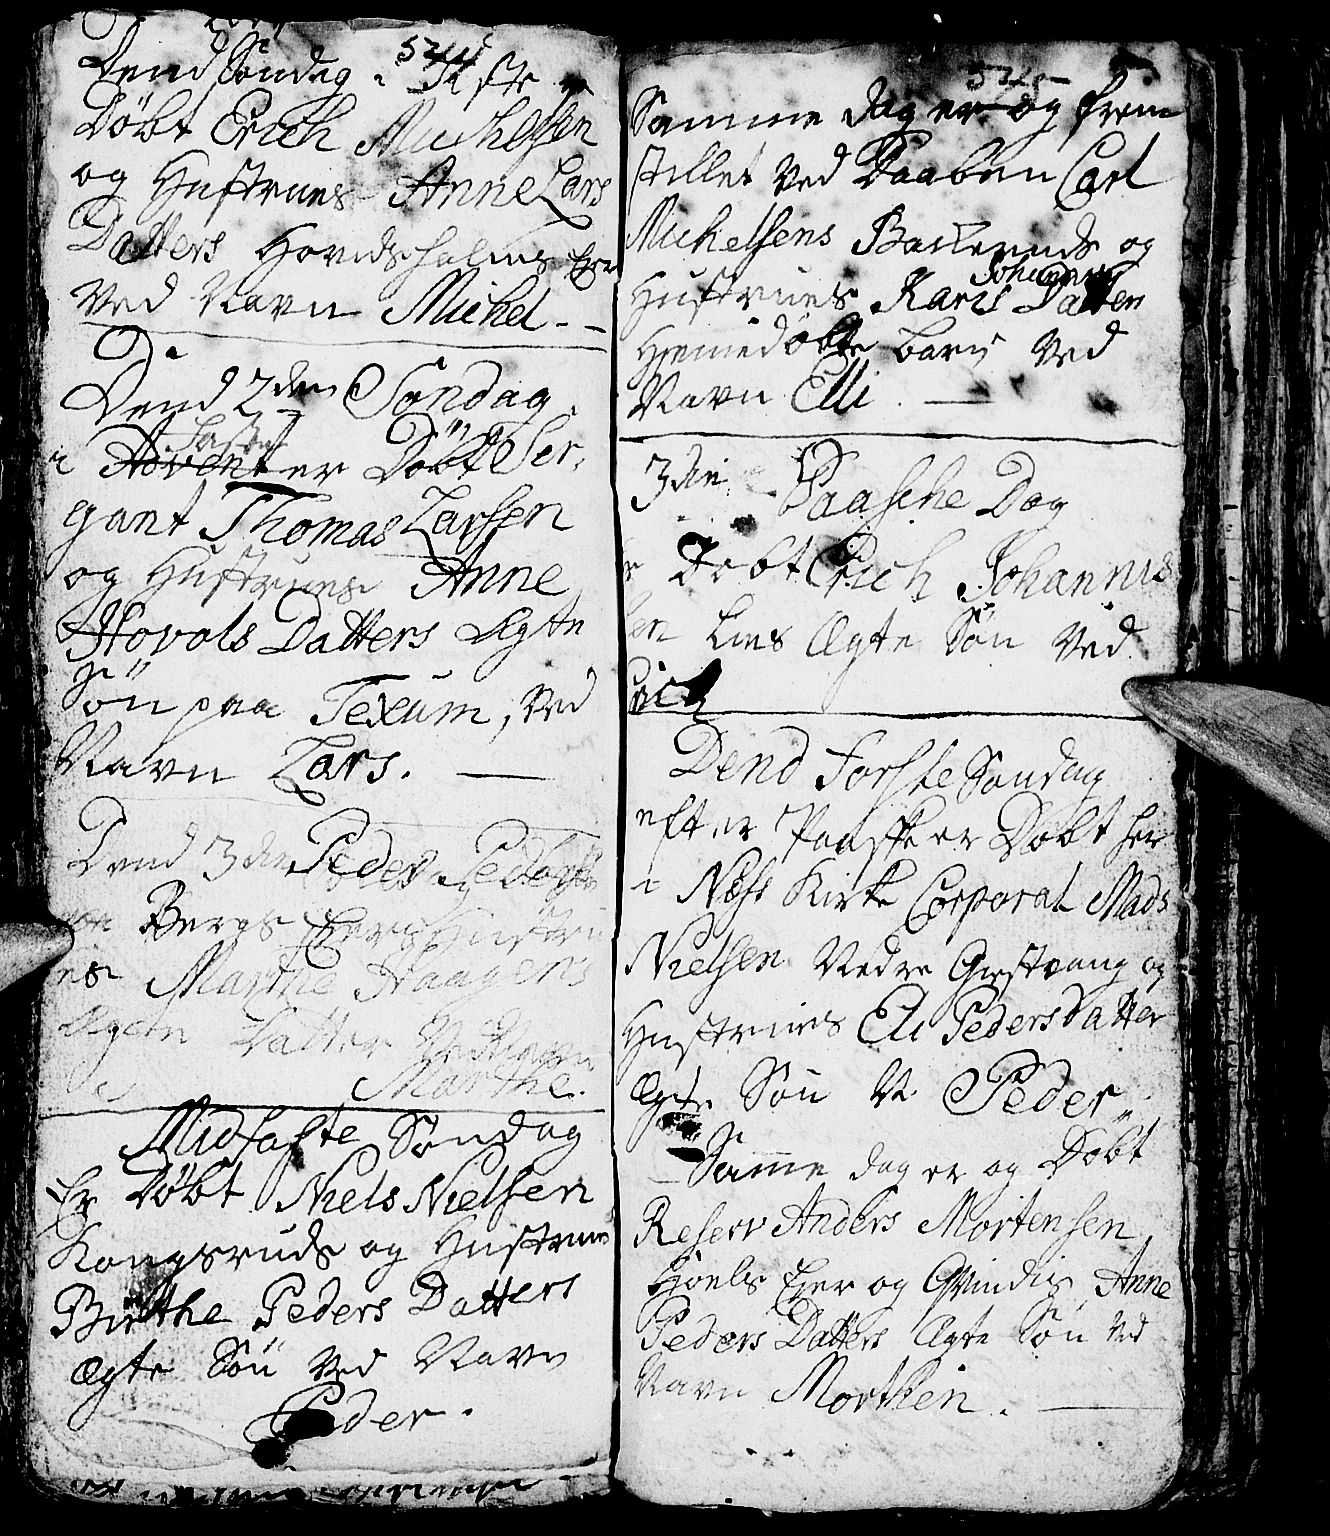 Dend Søndag i Faste er
Døbt Erich Michelsen
og Hustrues Anne Lars
Datters Hovidsholms Eyer
Ved Navn Michel. -
Dend 2den Søndag
i Faste er Døbt Ser,
gant Thomas Larsen
og Hustrues Anne
Hovols Datters Ægte
Søn paa Texum, Ved
Navn Lars. —
Dend 3die Peder Peder
Bergs Eyers Hustru
es Marthe Haagens
Ægte Datter Ved Navn
Marthe.
Midfaste Søndag
Er Døbt Niels Nielsen
Kongsruds og Hustrues
Birthe Peders Datters
ægte Søn Ved Navn
Peder.
524
Samme dag er og frem
stillet Ved Daaben Carl
Michelsens Basterud og
Hustrues Karis Johannis Datters
Hiemedøbte barn Ved
Navn Elli. —
3die Paasche Dag
er Døbt Erich Johannis
sen Lies Ægte Søn Ved
Erich
Dend Første Søndag
efter Paaske er Døbt her
i Næss Kirke Corporal Mads
Nielsen Nedre Giestvang og
Hustrues Eli Pedersdatter
Ægte Søn N. Peder
Samme dag er og Døbt
Reserv Anders Mortensen
Hioels Eyer og Qvindis Anne
Peders Datters Ægte Søn Ved
Navn Morthen. —